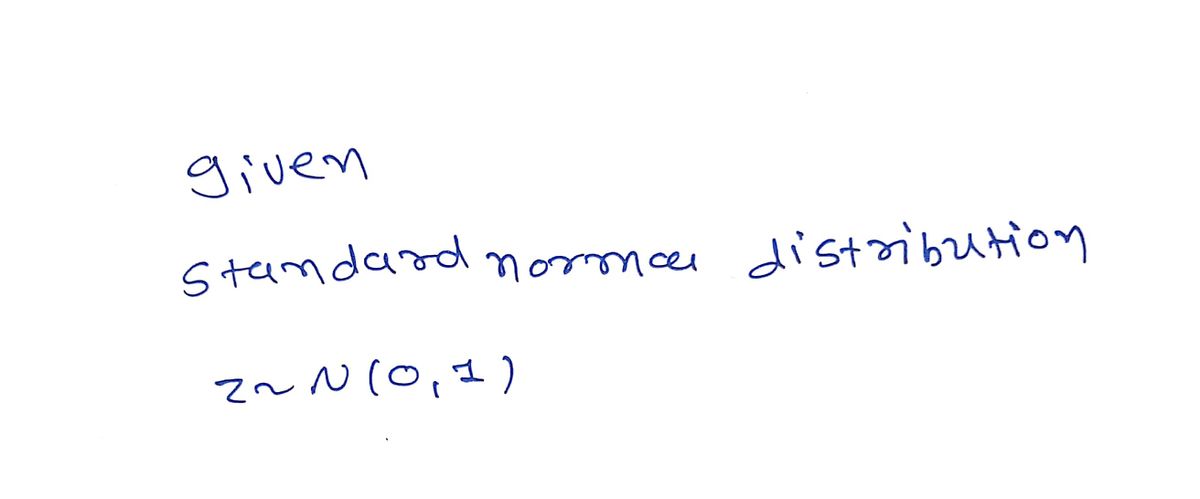 given
standard normal distribution
z~ N(0,1)